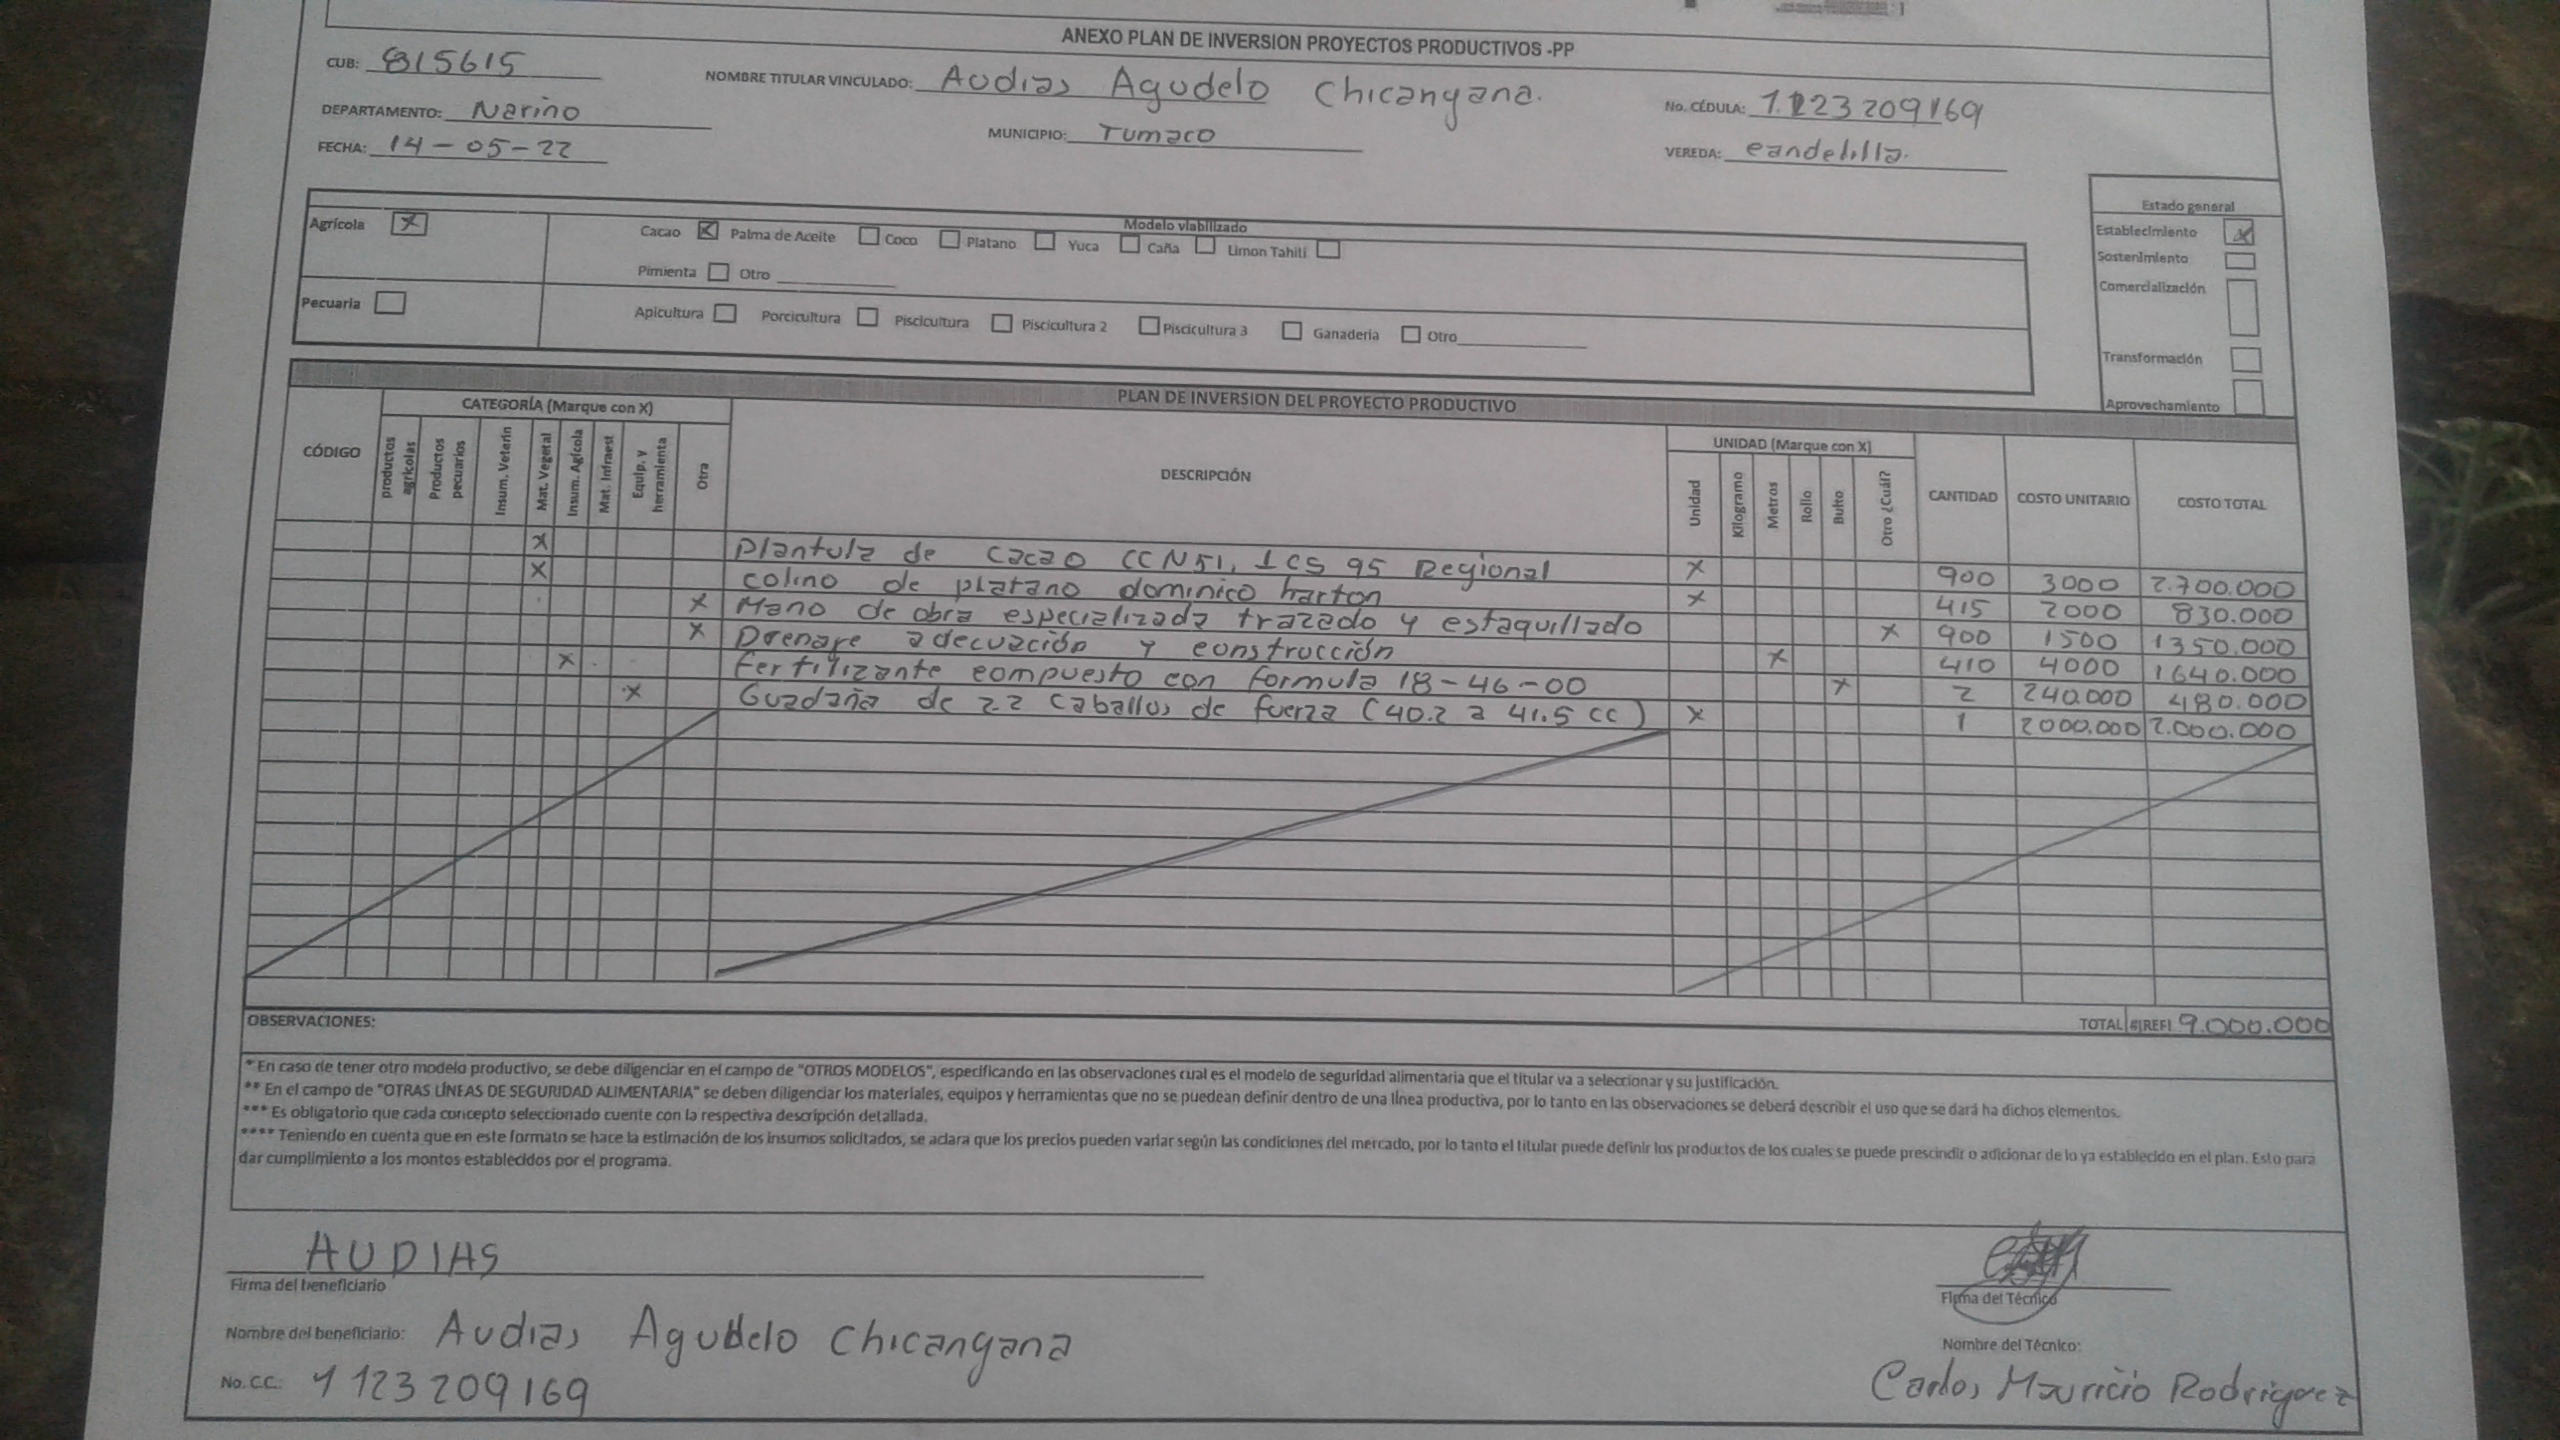 ANEXO PLAN DE INVERSION PROYECTOS PRODUCTIVOS -PP
CUB: 815615 NOMBRE TITULAR VINCULADO: Audias Agudelo Chicangana. No. CÉDULA: 1.123209169
DEPARTAMENTO: Nariño MUNICIPIO: Tumaco VEREDA: candelilla.
FECHA: 14-05-22
Estado general
Modelo viabilizado
Agrícola X Cacao X Palma de Aceite Coco Platano Yuca Caña Limon Tahití
Pimienta Otro
Pecuaria Apicultura Porcicultura Piscicultura Piscicultura 2 Piscicultura 3 Ganaderia Otro
Establecimiento X
Sostenimiento
Comercialización
Transformación
Aprovechamiento
PLAN DE INVERSION DEL PROYECTO PRODUCTIVO
CATEGORÍA (Marque con X) UNIDAD (Marque con X)
CÓDIGO productos agrícolas Productos pecuarios Insum. Veterin Mat. Vegetal Insum. Agícola Mat. Infraest Equip. y herramienta Otra DESCRIPCIÓN Unidad Kilogramo Metros Rollo Bulto Otro ¿Cuál? CANTIDAD COSTO UNITARIO COSTO TOTAL
X Plantula de cacao CCN51, ICS 95 Regional X 900 3000 2.700.000
X colino de platano dominico harton X 415 2000 830.000
X Mano de obra especializada trazado y estaquillado X 900 1500 1350.000
X Drenaje adecuación y construcción X 410 4000 1640.000
X Fertilizante compuesto con formula 18-46-00 X 2 240.000 480.000
X Guadaña de 2.2 caballos de fuerza (40.2 a 41.5 cc) X 1 2000.000 2.000.000
OBSERVACIONES: TOTAL 9.000.000
* En caso de tener otro modelo productivo, se debe diligenciar en el campo de "OTROS MODELOS", especificando en las observaciones cual es el modelo de seguridad alimentaria que el titular va a seleccionar y su justificación.
** En el campo de "OTRAS LÍNEAS DE SEGURIDAD ALIMENTARIA" se deben diligenciar los materiales, equipos y herramientas que no se puedean definir dentro de una línea productiva, por lo tanto en las observaciones se deberá describir el uso que se dará ha dichos elementos.
*** Es obligatorio que cada concepto seleccionado cuente con la respectiva descripción detallada.
**** Teniendo en cuenta que en este formato se hace la estimación de los insumos solicitados, se aclara que los precios pueden variar según las condiciones del mercado, por lo tanto el titular puede definir los productos de los cuales se puede prescindir o adicionar de lo ya establecido en el plan. Esto para
dar cumplimiento a los montos establecidos por el programa.
AUDIAS
Firma del beneficiario Firma del Técnico
Nombre del beneficiario: Audias Agudelo Chicangana Nombre del Técnico:
No. C.C. 1123209169 Carlos Mauricio Rodriguez